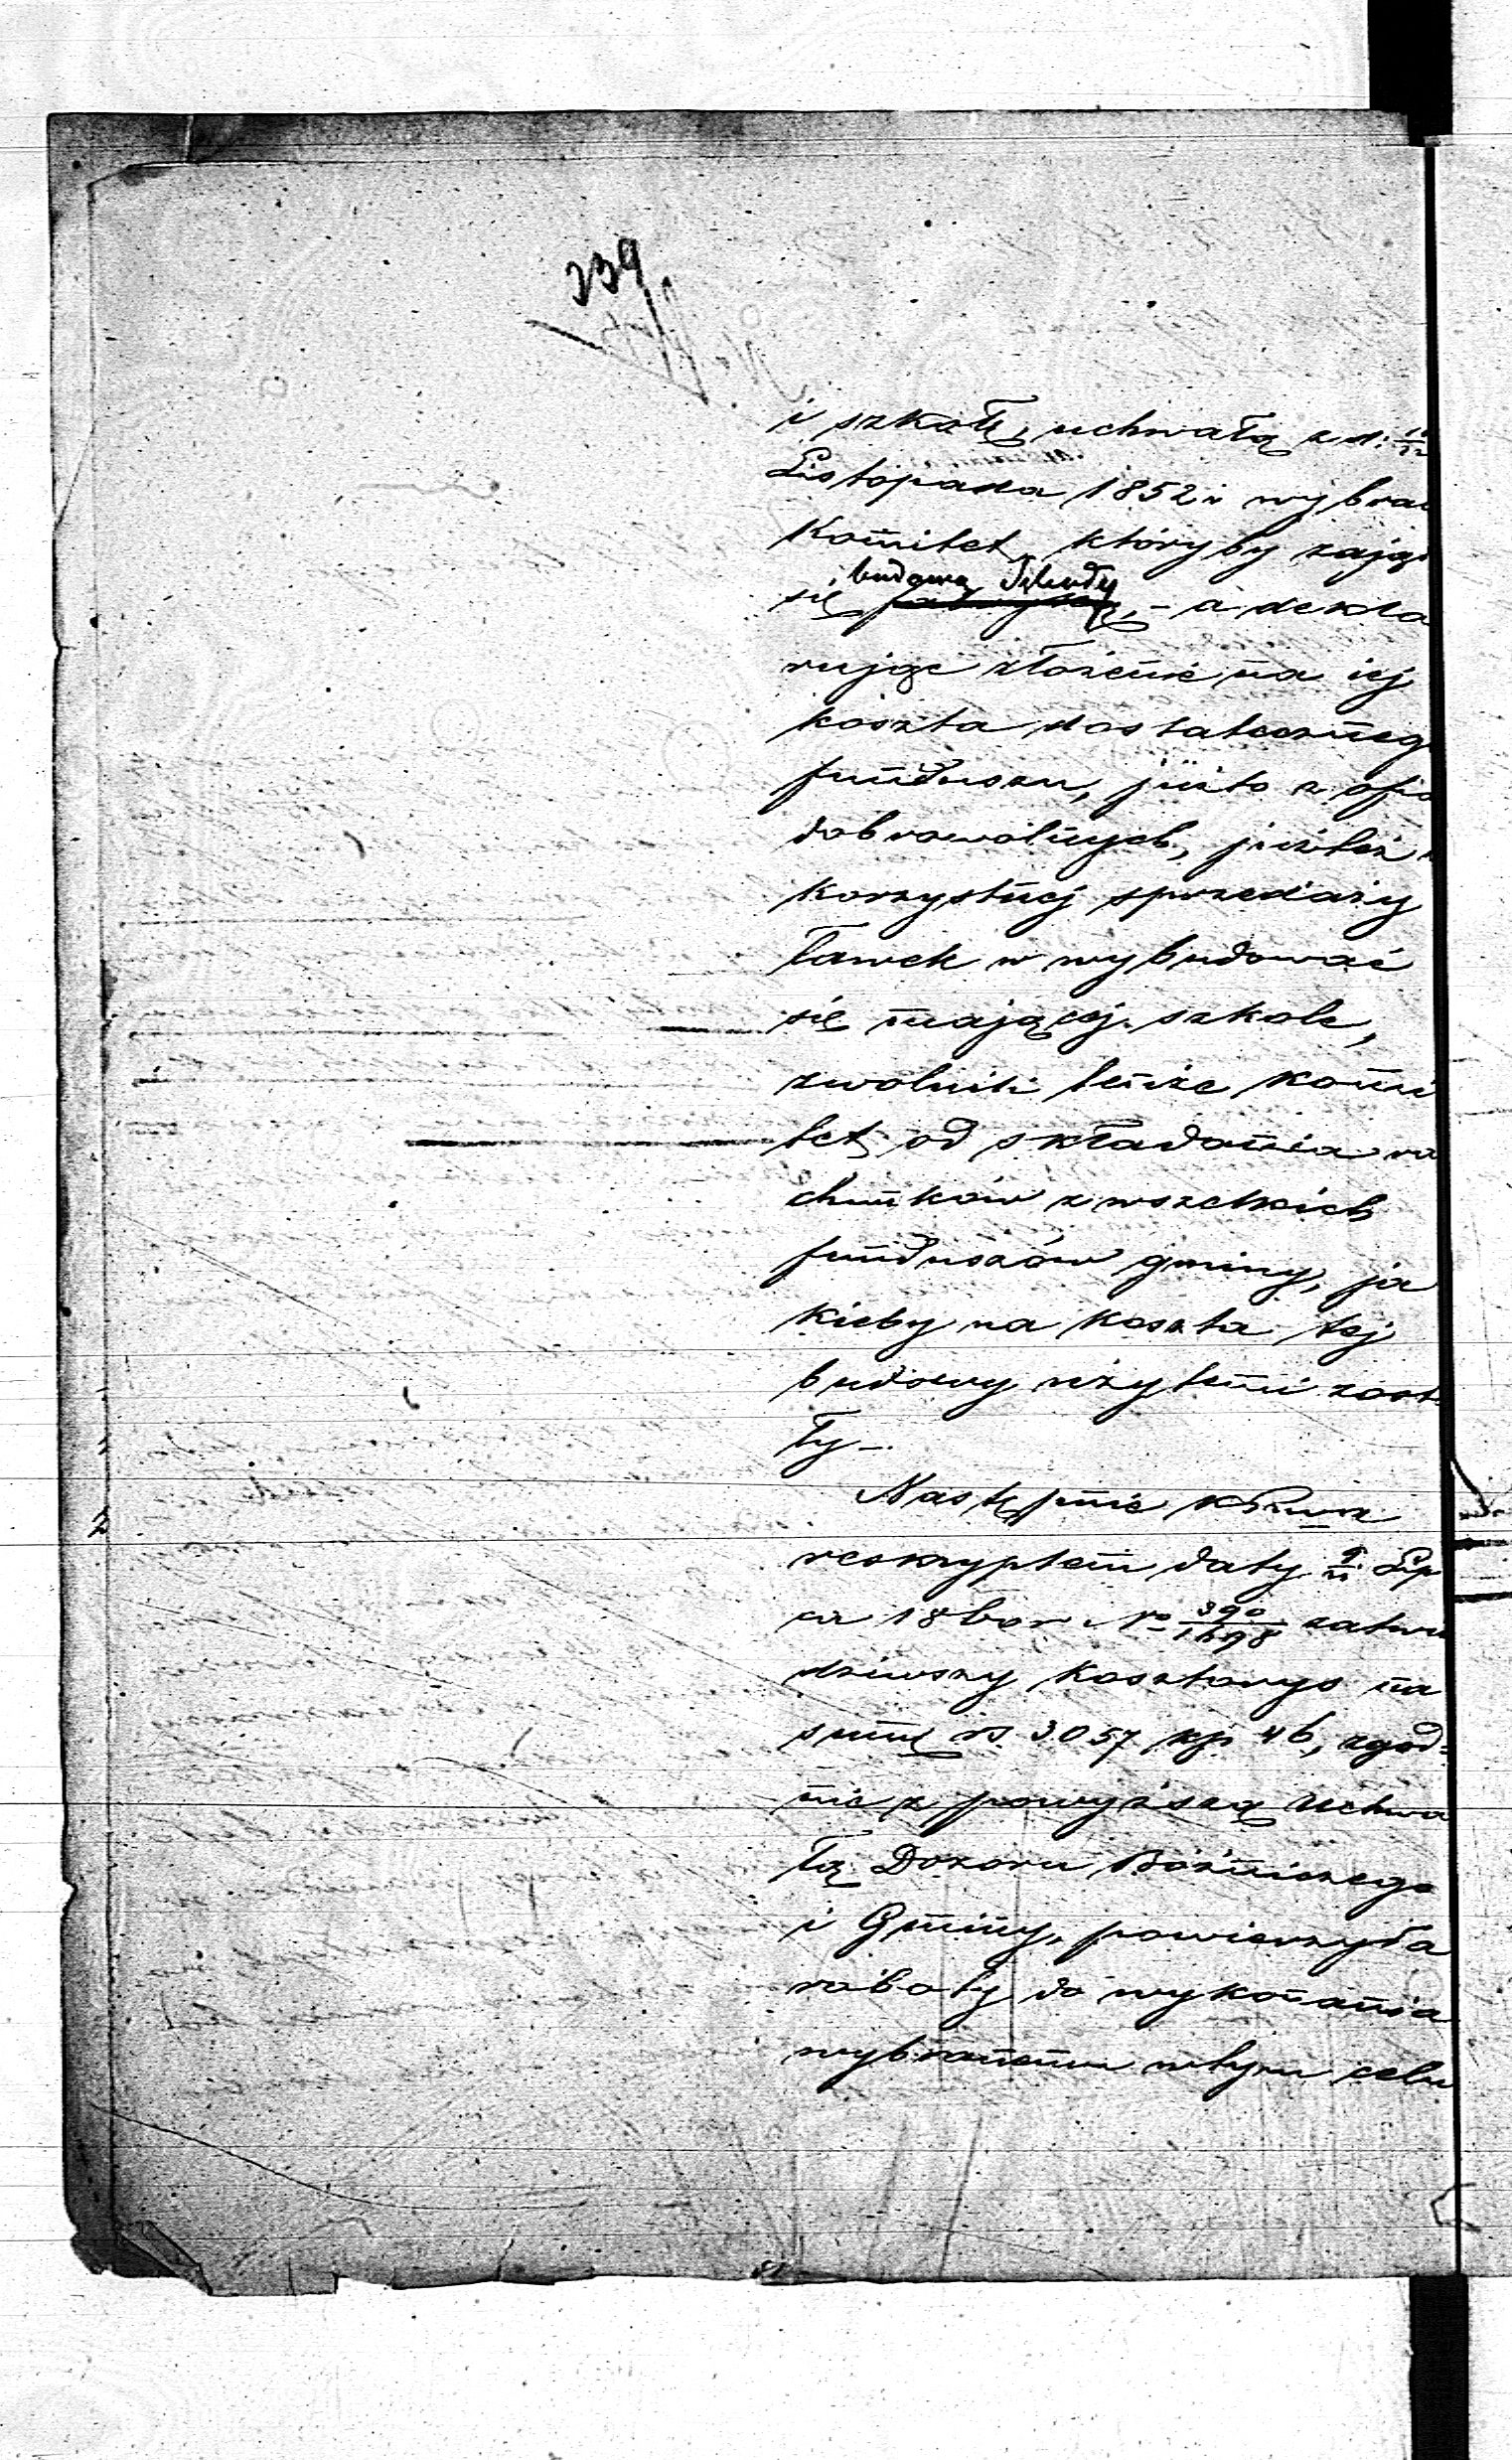 339
i szkołę, uchwałą z d:
Listopada 1852 r wybrał
Komitet, któryby zająć
budową Szkoły
się a dekla
rując złożenie na jej
koszta dostatecznego
funduszu, jużto z ofia
dobrowolnych, jużteż z
korzystnej sprzedaży
ławek w wybudować
się mającej szkole,
zwolnili tenże komi
tet od składania ra
chunków z wszelkich
funduszów gminy, ja
kieby na koszta tej
budowy użytemi zosta
ły –
Następnie
reskryptem daty 9/21 Lip
ca 1860 r No 390/1698 zatwie
dziwszy kosztorys na
summę rs. 3057 kp 46, zgod=
nie z powyższą uchwa
łą Dozoru Bóżniczego
i Gminy, powierzyła
roboty do wykonania
wybranemu w tym celu